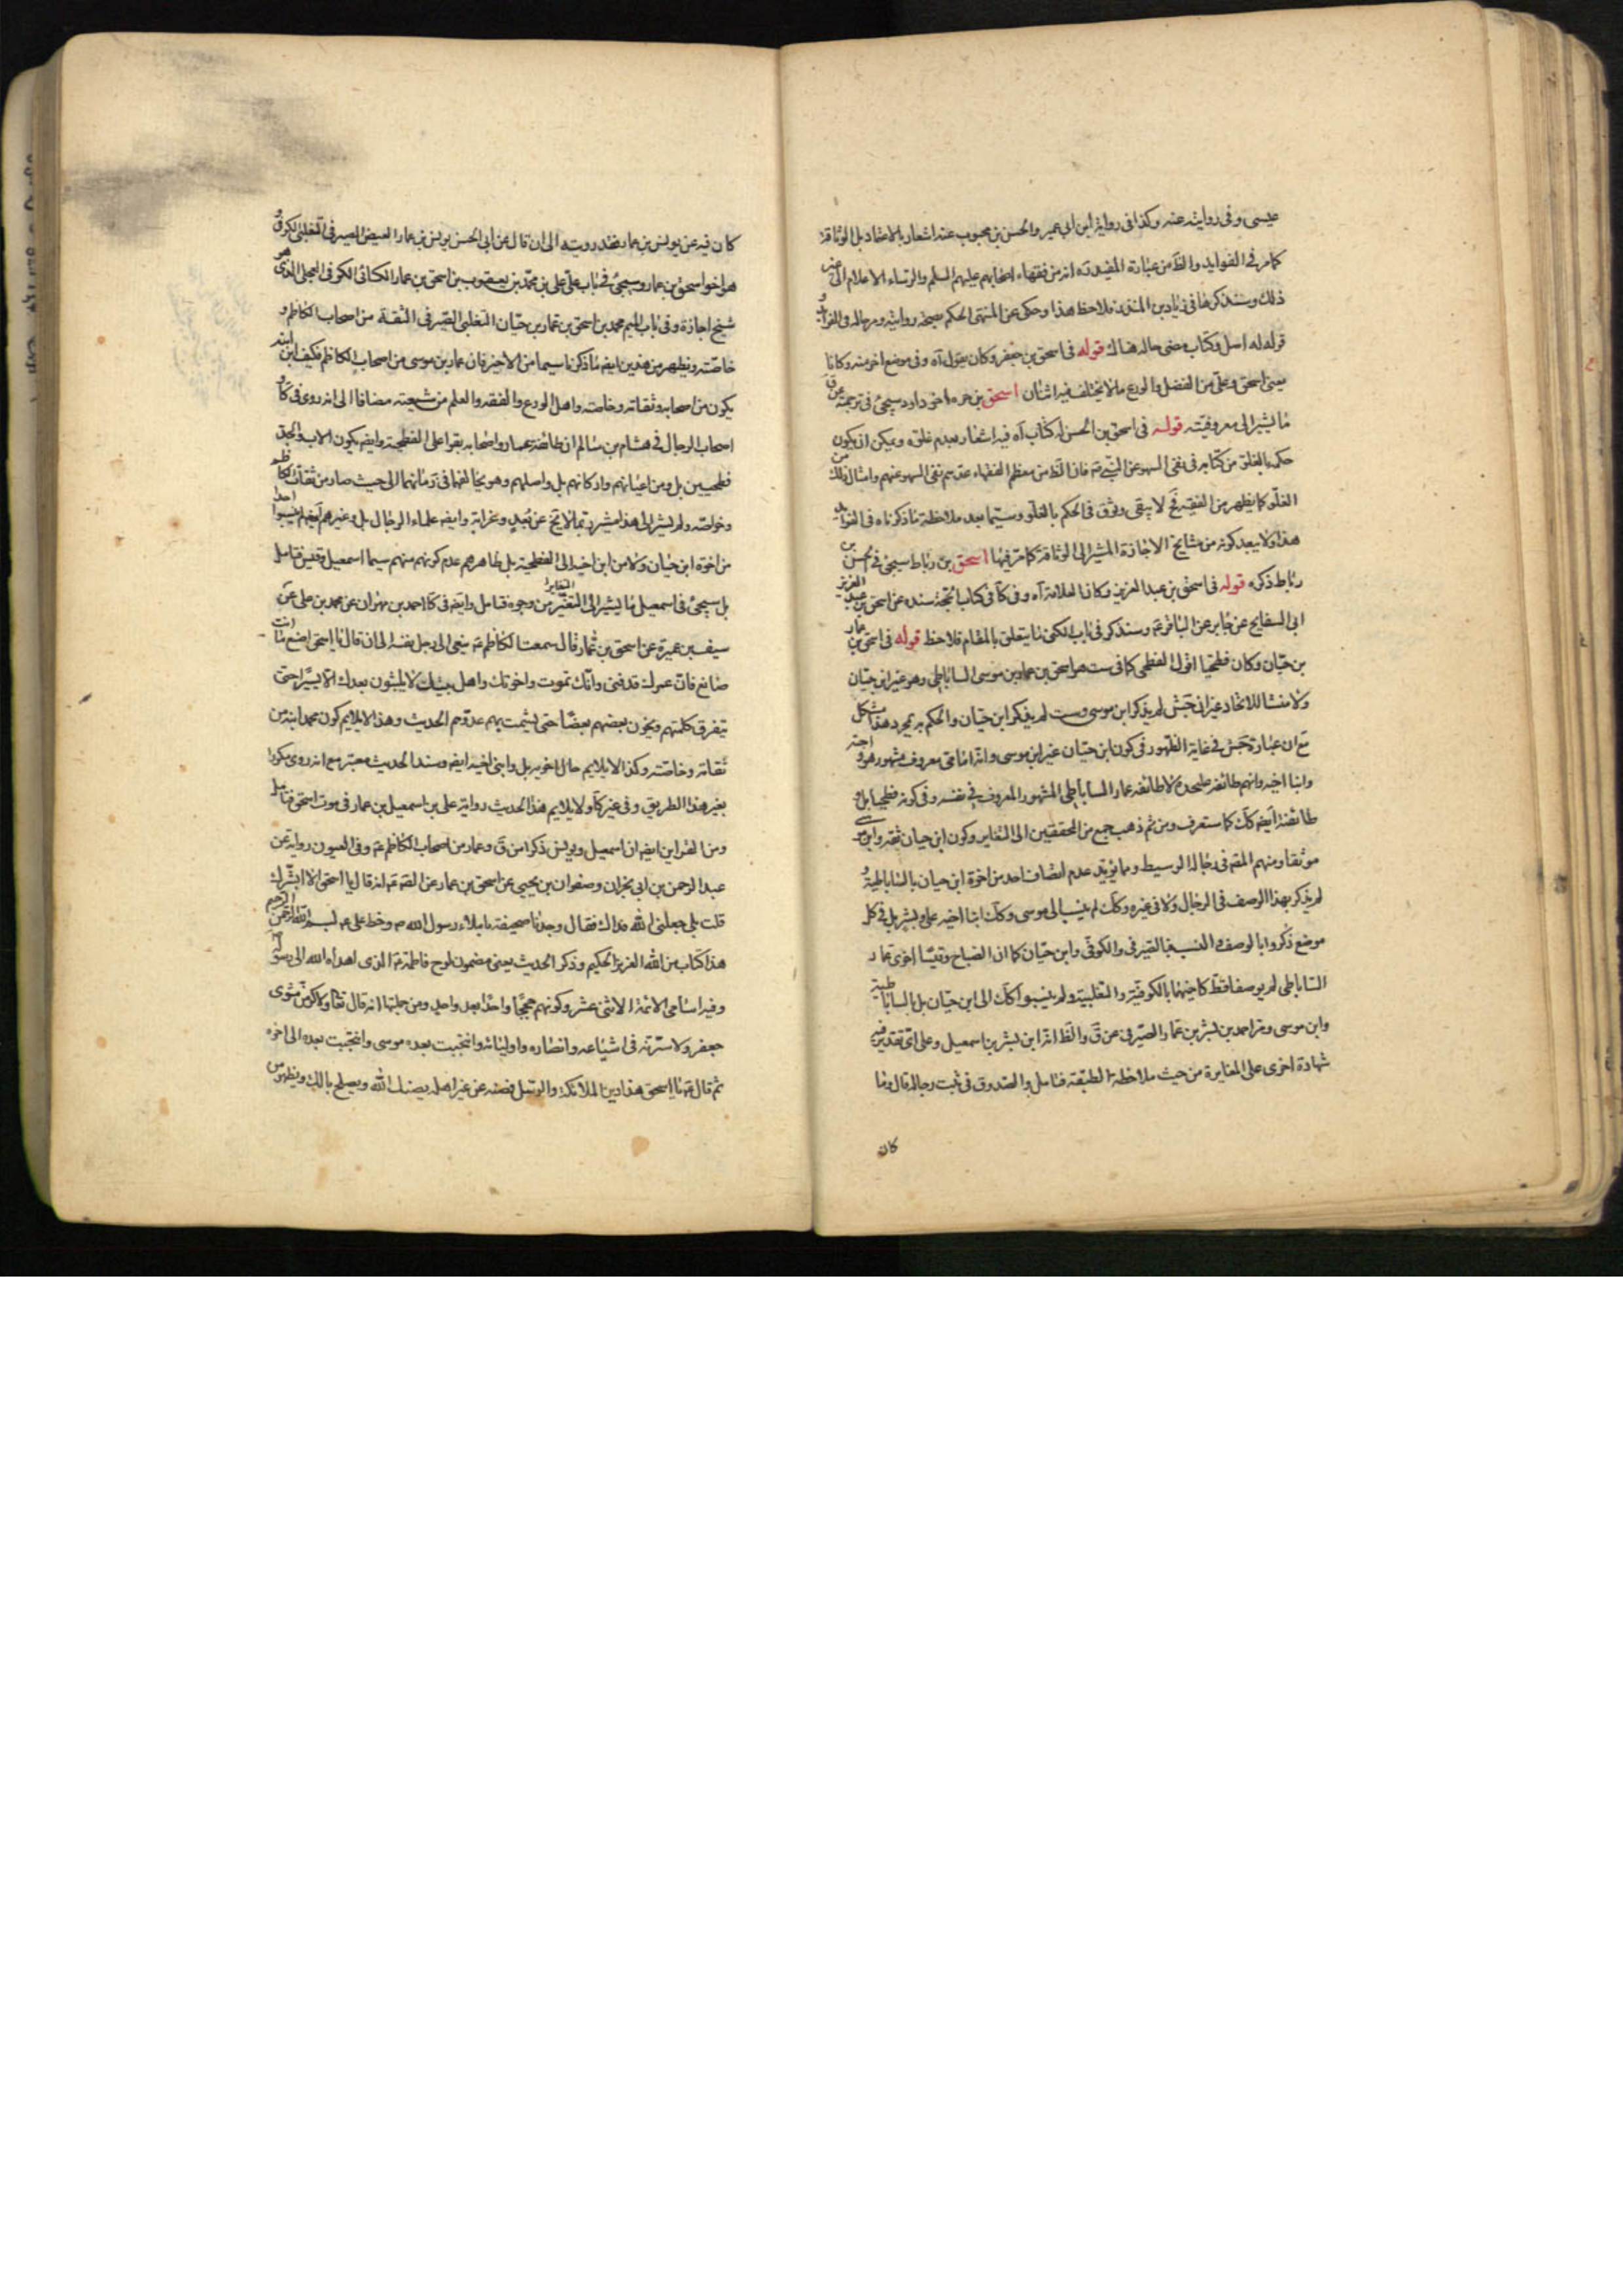 عيسى وفى روايته عنه وكذا فى رواية ابن ابي عمير والحسن بن محبوب عنه اشعار بالاعتماد بل الوثاقة
كما مر فى الفوايد والظ من عبارة المفيد ره انه من فقهاء اصحابهم عليهم السلم والرؤساء الاعلام الى غير
ذلك وسنذكرها فى زياد بن المنذر فلاحظ هذا وحكى عن المنتهى الحكم بصحة روايته
قوله له اصل وكتاب مضى حاله هناك قوله فى اسحق بن جعفر وكان يقول آه وفى موضع اخر منه وكانا
يعنى اسحق وعلى من الفضل والورع ما لا يختلف فيه اثنان اسحق بن اخو داود سيجئ فى ترجمته
ما يشير الى معروفيته قوله فى اسحق بن الحسن له كتاب آه فيه اشعار بعدم غلوه ويمكن ان يكون
حكمه بالغلو من كتابه فى نفى السهو عن النبي ص فان الظ من معظم الفقهاء عدهم نفى السهو عنهم وامثال ذلك من
الغلو كما يظهر من الفقيه فح لا يبقى وثوق فى الحكم بالغلو وسيما بعد ملاحظة ما ذكرناه فى الفوايد
هذا ولا يبعد كونه من مشايخ الاجازة المشير الى الوثاقة كما مر فيها اسحق بن رباط سيجئ فى الحسن بن
رباط ذكره قوله فى اسحق بن عبد العزيز وكانا لعلامة آه وفى كا فى كتاب الحجة سنده عن اسحق بن عبد العزيز
ابى السفاتج عن جابر عن الباقر ع وسنذكر فى باب الكنى ما يتعلق بالمقام فلاحظ قوله فى اسحق بن عمار
بن حيان وكان فطحيا اقول الفطحى كما فى ست هو اسحق بن عمار بن موسى الساباطى وهو غير ابن حيان
ولا منشا للاتحاد غير ان جش لم يذكر ابن موسى وست لم يذكر ابن حيان والحكم به بمجرد هذا مشكل
مع ان عبارة جش فى غاية الظهور فى كون ابن حيان غير ابن موسى وانه امامى معروف مشهور هو واخوته
وابنا اخيه وانهم طائفة على حدة لا طائفة عمار الساباطى المشهور المعروف فى نفسه وفى كونه فطحيا بل و
طائفته ايضه كك كما ستعرف ومن ثم ذهب جمع من المحققين الى التغاير وكون ابن حيان ثقه وابن موسى
موثقا ومنهم المص فى رجاله الوسيط ومما يؤيد عدم اتصاف احد من اخوة ابن حيان بالساباطية و
لم يذكر بهذا الوصف فى الرجال ولا فى غيره وكك لم ينسب الى موسى وكك ابنا اخيه على وبشر بل فى كل
موضع ذكروا بالوصف والنسبة فبالصيرفى والكوفى وابن حيان كما ان الصباح وقيسا اخوى عمار
الساباطى لم يوصفا قط كابنيهما بالكوفية والتغلبية ولم ينسبوا كك الى ابن حيان بل بالساباطية
وابن موسى ومر احمد بن بشر بن عمار الصيرفى عن ق والظ انه ابن بشر بن اسمعيل وعلى اى تقدير فيه
شهادة اخرى على المغايرة من حيث ملاحظة الطبقة فتامل والصدوق فى ثبت رجاله قال وما
كان
كان فيه عن يونس بن عمار فقد رويته الى ان قال عن ابى الحسن يونس بن عمار الفيض الصيرفى التغلبى الكوفى و
هو اخو اسحق بن عمار وسيجئ فى باب على على بن محمد بن يعقوب بن اسحق بن عمار الكسائى الكوفى العجلى الذى هو
شيخ اجازة وفى باب الميم محمد بن اسحق بن عمار بن حيان التغلبى الصيرفى الثقة من اصحاب الكاظم و
خاصته ويظهر من هذين ايضه ما ذكرنا سيما من الاخير فان عمار بن موسى من اصحاب الكاظم فكيف ابن ابنه
يكون من اصحابه وثقاته وخاصته واهل الورع والفقه والعلم من شيعته مضافا الى انه روى فى كا و
اصحاب الرجال فى هشام بن سالم ان طائفة عمار واصحابه بقوا على الفطحية وايضه يكون الاب والجد
فطحيين بل ومن اعيانهم واركانهم بل واصلهم وهو يخالفهما فى زمانهما الى حيث صار من ثقات الكاظم
وخواصه ولم يشر الى هذا مشير مما لا يخ عن بعد وغرابة وايضه علماء الرجال بل وغيرهم ايضه لم ينسبوا احدا
من اخوة ابن حيان ولا من ابن اخيه الى الفطحية بل ظاهرهم عدم كونهم منهم سيما اسمعيل وقيس فتامل
بل سيجئ فى اسمعيل ما يشير الى التغير التغاير من وجوه فتامل وايضه فى كا احمد بن مهران عن محمد بن على عن
سيف بن عميرة عن اسحق بن عمار قال سمعت الكاظم ع ينعى الى رجل نفسه الى ان قال يا اسحق اصنع ما انت
صانع فان عمرك قد فنى وانك تموت واخوتك واهل بيتك لا يلبثون بعدك الا يسيرا حتى
يتفرق كلمتهم ويخون بعضهم بعضا حتى يشمت بهم عدوهم الحديث وهذا لا يلايم كون محمد ابنه من
ثقاته وخاصته وكذا لا يلايم حال اخويه بل وابنى اخيه ايضه وسند الحديث معتبر مع انه روى مكررا
بغير هذا الطريق وفى غير كا ولا يلايم هذا الحديث رواية على بن اسمعيل بن عمار فى موت اسحق فتامل
ومن القراين ايضه ان اسمعيل ويونس ذكرا من ق وعمار من اصحاب الكاظم ع وفى العيون رواية عن
عبد الرحمن بن ابى نجران وصفوان بن يحيى عن اسحق بن عمار عن الصه ع انه قال يا اسحق الا ابشرك
قلت بلى جعلنى الله فداك فقال وجدنا صحيفة باملاء رسول الله ص وخط على ع بسم الله الرحمن الرحيم
هذا كتاب من الله العزيز الحكيم وذكر الحديث يعنى مضمون لوح فاطمة ع الذى اهداه الله الى رسوله
وفيه اسامى الائمة الاثنى عشر وكونهم حججا واحدا بعد واحد ومن جملتها انه قال تعا ولاكرمن مثوى
جعفر ولاسرنه فى اشياعه وانصاره واوليائه وانتجبت بعده موسى وانتجبت بعده الى اخره
ثم قال ع يا اسحق هذا دين الملائكة والرسل فصنه عن غير اهله يصنك الله ويصلح بالك ويظهر من